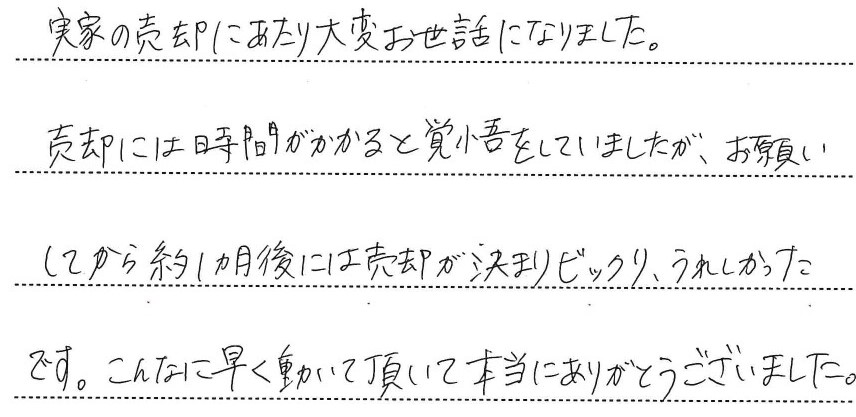 実家の売却にあたり大変お世話になりました。
売却には時間がかかると覚悟をしていましたが、お願い
してから約1ヵ月後には売却が決まりビックリ、うれしかった
です。こんなに早く動いて頂いて本当にありがとうございました。